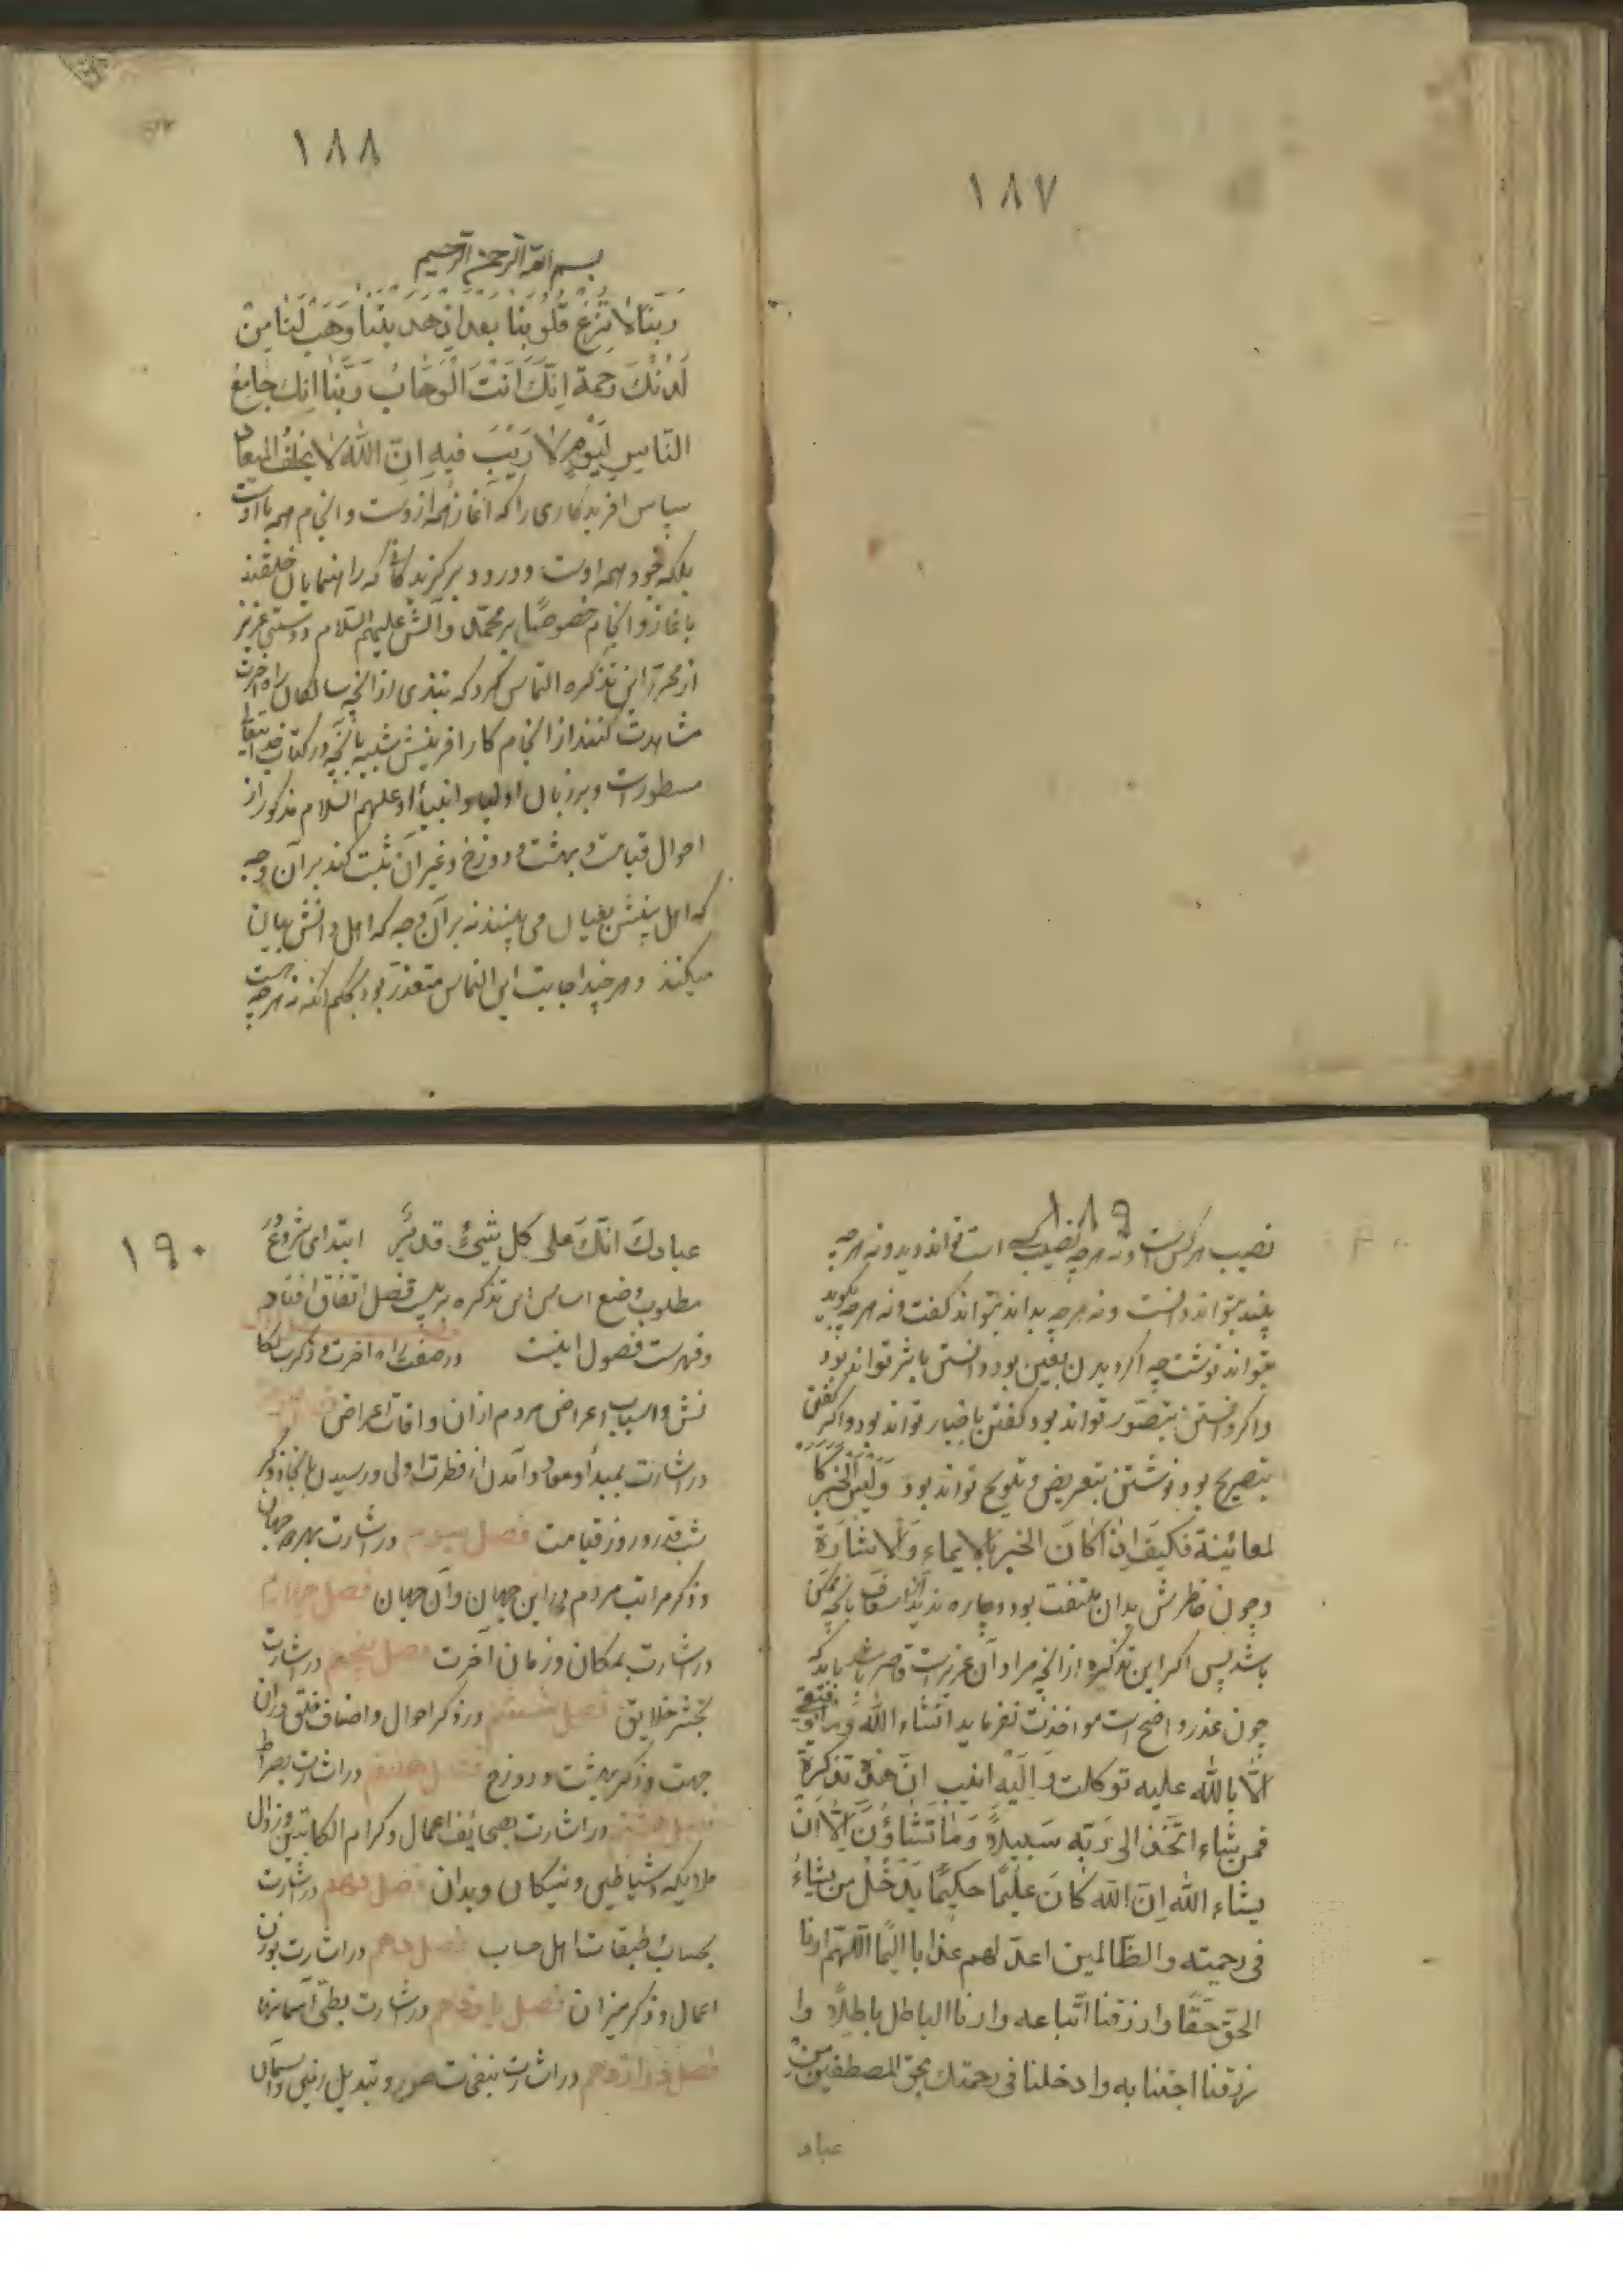 ١٨٧
١٨٨
بسم الله الرحمن الرحیم
رَبَّنَا لا تُزِغ قُلُوبَنا بعد اِذ هدیتنا وَهَب لَنا مِن
لَدُنكَ رحمة اِنَّكَ اَنتَ الوَهّابُ رَبَّنا اِنك جامِع
النّاسِ لِیَومٍ لا رَیبَ فیهِ اِنّ اللّٰه لا یخلف المیعاد
سپاس افریدکاری را که آغاز همه ازوست و انجام همه با اوست
بلکه خود همه اوست و درود بر کزیدکانی که راهنمایان خلقند
باغاز و انجام خصوصًا بر محمّد و آلش علیهم السّلام دوستی عزیز
از محرر این تذکره التماس کرد که نبذی از انچه سالکان راه آخرت
مشاهدت کنند از انجام کار افرینش شبیه بانچه در کتاب خدایتعالی
مسطورست و بر زبان اولیا و انبیاء او علیهم السّلام مذکور از
احوال قیامت و بهشت و دوزخ و غیر آن ثبت کند بر آن وجه
که اهل بینش بعیان می بینند نه بر آن وجه که اهل دانش بیان
میکنند و هرچند اجابت این التماس متعذر بود بحکم انکه نه هرچه هست
١٨٩
نصیب هرکس است و نه هرچه نصیب کسی است تواند دید و نه هرچه
بیند بتواند دانست و نه هرچه بداند بتواند کفت و نه هرچه بکوید
بتواند نوشت چه اکر دیدن بعین بود دانستن باثر تواند بود
و اکر دانستن بتصوّر تواند بود کفتن باخبار تواند بود و اکر کفتن
بتصریح بود نوشتن بتعریض و تلویح تواند بود وَ لَیسَ الخَبَر کا
لمعائینة فکیف اِذا کانَ الخبر بالایماء وَ الاشارَة
و چون خاطرش بدان ملتفت بود و چاره ندید از اسعاف بانچه ممکن
باشد پس اکر این تذکره از انچه مراد آن عزیزست قاصر باشد باید که
چون عذر واضح است مواخذت نفرماید انشاء اللّه و ما توفیقی
الّا باللّه علیه توکلت وَ اِلَیه انیب اِنّ هذِه تذکِرةٌ
فمن شاء اتّخذ الی رَبّه سَبیلاً وَ مٰا تَشٰاؤُنَ اِلّا اَن
یشاء اللّه اِنّ اللّه کانَ علیمًا حکیمًا یُدخُلُ من یشاءُ
فی رحمته و الظّالمین اعدّ لهم عذابا الیمًا اللّهمّ ارنا
الحقّ حَقًّا و ارزقنا اتّباعه و ارنا الباطل باطلاً و ا
رزقنا اجتنابه و ادخلنا فی رحمتك بحقّ المصطفین مِن
عباد
١٩٠
عبادكَ انّكَ علی کل شیئٍ قدیرٌ ابتدای شروعُ در
مطلوب وضع اساس این تذکره بر بیست فصل اتفاق افتاد
و فهرست فصول اینست در صفت راه اخرت و ذکر سالکا
نش و اسباب اعراض مردم از ان و افات اعراض
در اشارت بمبدأ و معاد و آمدن از فطرت اولی و رسیدن بانجا و ذکر
شب قدر و روز قیامت فصل سیوم در اشارت بهر دو جهان
و ذکر مراتب مردم در این جهان و آن جهان فصل چهارم
در اشارت بمکان و زمان آخرت فصل پنجم در اشارت
بحشر خلایق فصل ششم در ذکر احوال و اصناف خلق در ان
جهت و ذکر بهشت و دوزخ فصل هفتم در اشارت بصراط
فصل هشتم در اشارت بصحائف اعمال و کرام الکاتبین و نزول
ملایکه و شیاطین و نیکان و بدان فصل نهم در اشارت
بحساب طبقات اهل حساب فصل دهم در اشارت بوزن
اعمال و ذکر میزان فصل یازدهم در اشارت بطی آسمانها
فصل دوازدهم در اشارت بنفخات صور و تبدیل زمین و آسمان